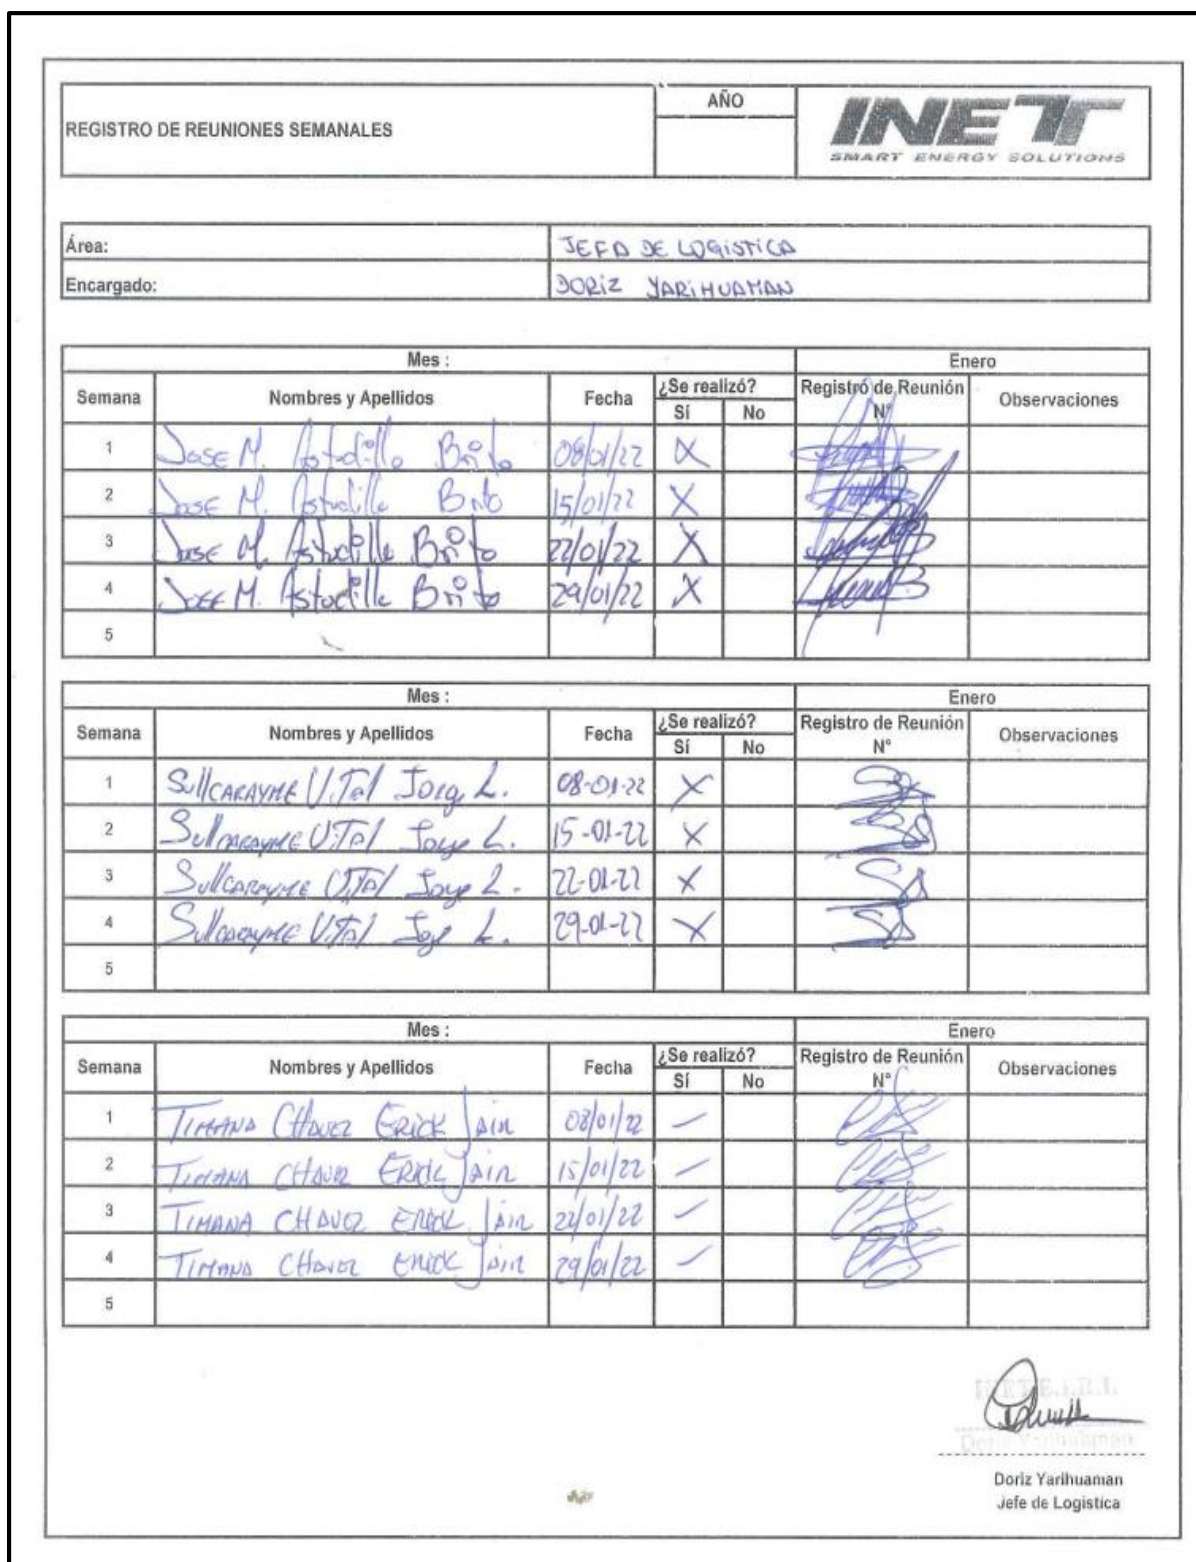 REGISTRO DE REUNIONES SEMANALES
AÑO
INETT
SMART ENERGY SOLUTIONS
Área: JEFA DE LOGISTICA
Encargado: DORIZ YARIHUAMAN
Mes : Enero
Semana Nombres y Apellidos Fecha ¿Se realizó? Sí No Registro de Reunión N° Observaciones
1 Jose M. Astudillo Brito 08/01/22 X
2 Jose M. Astudillo Brito 15/01/22 X
3 Jose M. Astudillo Brito 22/01/22 X
4 Jose M. Astudillo Brito 29/01/22 X
5
Mes : Enero
Semana Nombres y Apellidos Fecha ¿Se realizó? Sí No Registro de Reunión N° Observaciones
1 SullCARAYME ViTal Jorge L. 08-01-22 X
2 SullCARAYME ViTal Jorge L. 15-01-22 X
3 SullCARAYME ViTal Jorge L. 22-01-22 X
4 SullCARAYME ViTal Jorge L. 29-01-22 X
5
Mes : Enero
Semana Nombres y Apellidos Fecha ¿Se realizó? Sí No Registro de Reunión N° Observaciones
1 TIMANA CHAVEZ ERICK JAIR 08/01/22
2 TIMANA CHAVEZ ERICK JAIR 15/01/22
3 TIMANA CHAVEZ ERICK JAIR 22/01/22
4 TIMANA CHAVEZ ERICK JAIR 29/01/22
5
INETT E.I.R.L.
Doriz Yarihuaman
Doriz Yarihuaman
Jefe de Logistica